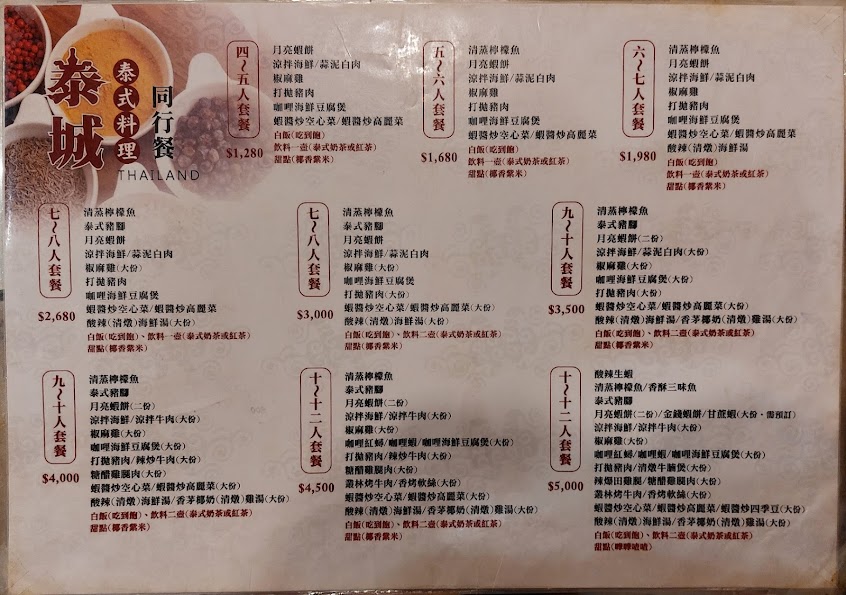 泰城
泰式料理
同行餐
THAILAND
四~五人套餐
$1,280
月亮蝦餅
涼拌海鮮/蒜泥白肉
椒麻雞
打拋豬肉
咖哩海鮮豆腐煲
蝦醬炒空心菜/蝦醬炒高麗菜
白飯(吃到飽)
飲料一壺(泰式奶茶或紅茶)
甜點(椰香紫米)
五~六人套餐
$1,680
清蒸檸檬魚
月亮蝦餅
涼拌海鮮/蒜泥白肉
椒麻雞
打拋豬肉
咖哩海鮮豆腐煲
蝦醬炒空心菜/蝦醬炒高麗菜
白飯(吃到飽)
飲料一壺(泰式奶茶或紅茶)
甜點(椰香紫米)
六~七人套餐
$1,980
清蒸檸檬魚
月亮蝦餅
涼拌海鮮/蒜泥白肉
椒麻雞
打拋豬肉
咖哩海鮮豆腐煲
蝦醬炒空心菜/蝦醬炒高麗菜
酸辣(清燉)海鮮湯
白飯(吃到飽)
飲料一壺(泰式奶茶或紅茶)
甜點(椰香紫米)
七~八人套餐
$2,680
清蒸檸檬魚
泰式豬腳
月亮蝦餅
涼拌海鮮/蒜泥白肉
椒麻雞(大份)
打拋豬肉
咖哩海鮮豆腐煲
蝦醬炒空心菜/蝦醬炒高麗菜
酸辣(清燉)海鮮湯(大份)
白飯(吃到飽)、飲料一壺(泰式奶茶或紅茶)
甜點(椰香紫米)
七~八人套餐
$3,000
清蒸檸檬魚
泰式豬腳
月亮蝦餅
涼拌海鮮/蒜泥白肉
椒麻雞(大份)
咖哩海鮮豆腐煲
打拋豬肉(大份)
蝦醬炒空心菜/蝦醬炒高麗菜(大份)
酸辣(清燉)海鮮湯(大份)
白飯(吃到飽)、飲料二壺(泰式奶茶或紅茶)
甜點(椰香紫米)
九~十人套餐
$3,500
清蒸檸檬魚
泰式豬腳
月亮蝦餅(二份)
涼拌海鮮/蒜泥白肉(大份)
椒麻雞(大份)
咖哩海鮮豆腐煲(大份)
打拋豬肉(大份)
蝦醬炒空心菜/蝦醬炒高麗菜(大份)
酸辣(清燉)海鮮湯/香茅椰奶(清燉)雞湯(大份)
白飯(吃到飽)、飲料二壺(泰式奶茶或紅茶)
甜點(椰香紫米)
九~十人套餐
$4,000
清蒸檸檬魚
泰式豬腳
月亮蝦餅(二份)
涼拌海鮮/涼拌牛肉(大份)
椒麻雞(大份)
咖哩海鮮豆腐煲(大份)
打拋豬肉/辣炒牛肉(大份)
糖醋雞腿肉(大份)
蝦醬炒空心菜/蝦醬炒高麗菜(大份)
酸辣(清燉)海鮮湯/香茅椰奶(清燉)雞湯(大份)
白飯(吃到飽)、飲料二壺(泰式奶茶或紅茶)
甜點(椰香紫米)
十~十二人套餐
$4,500
清蒸檸檬魚
泰式豬腳
月亮蝦餅(二份)
涼拌海鮮/涼拌牛肉(大份)
椒麻雞(大份)
咖哩紅蟳/咖哩蝦/咖哩海鮮豆腐煲(大份)
打拋豬肉/辣炒牛肉(大份)
糖醋雞腿肉(大份)
叢林烤牛肉/香烤軟絲(大份)
蝦醬炒空心菜/蝦醬炒高麗菜(大份)
酸辣(清燉)海鮮湯/香茅椰奶(清燉)雞湯(大份)
白飯(吃到飽)、飲料二壺(泰式奶茶或紅茶)
甜點(椰香紫米)
十~十二人套餐
$5,000
酸辣生蝦
清蒸檸檬魚/香酥三味魚
泰式豬腳
月亮蝦餅(二份)/金錢蝦餅/甘蔗蝦(大份・需預訂)
涼拌海鮮/涼拌牛肉(大份)
椒麻雞(大份)
咖哩紅蟳/咖哩蝦/咖哩海鮮豆腐煲(大份)
打拋豬肉/清燉牛腩煲(大份)
辣爆田雞腿/糖醋雞腿肉(大份)
叢林烤牛肉/香烤軟絲(大份)
蝦醬炒空心菜/蝦醬炒高麗菜/蝦醬炒四季豆(大份)
酸辣(清燉)海鮮湯/香茅椰奶(清燉)雞湯(大份)
白飯(吃到飽)、飲料二壺(泰式奶茶或紅茶)
甜點(嗶嗶喳喳)